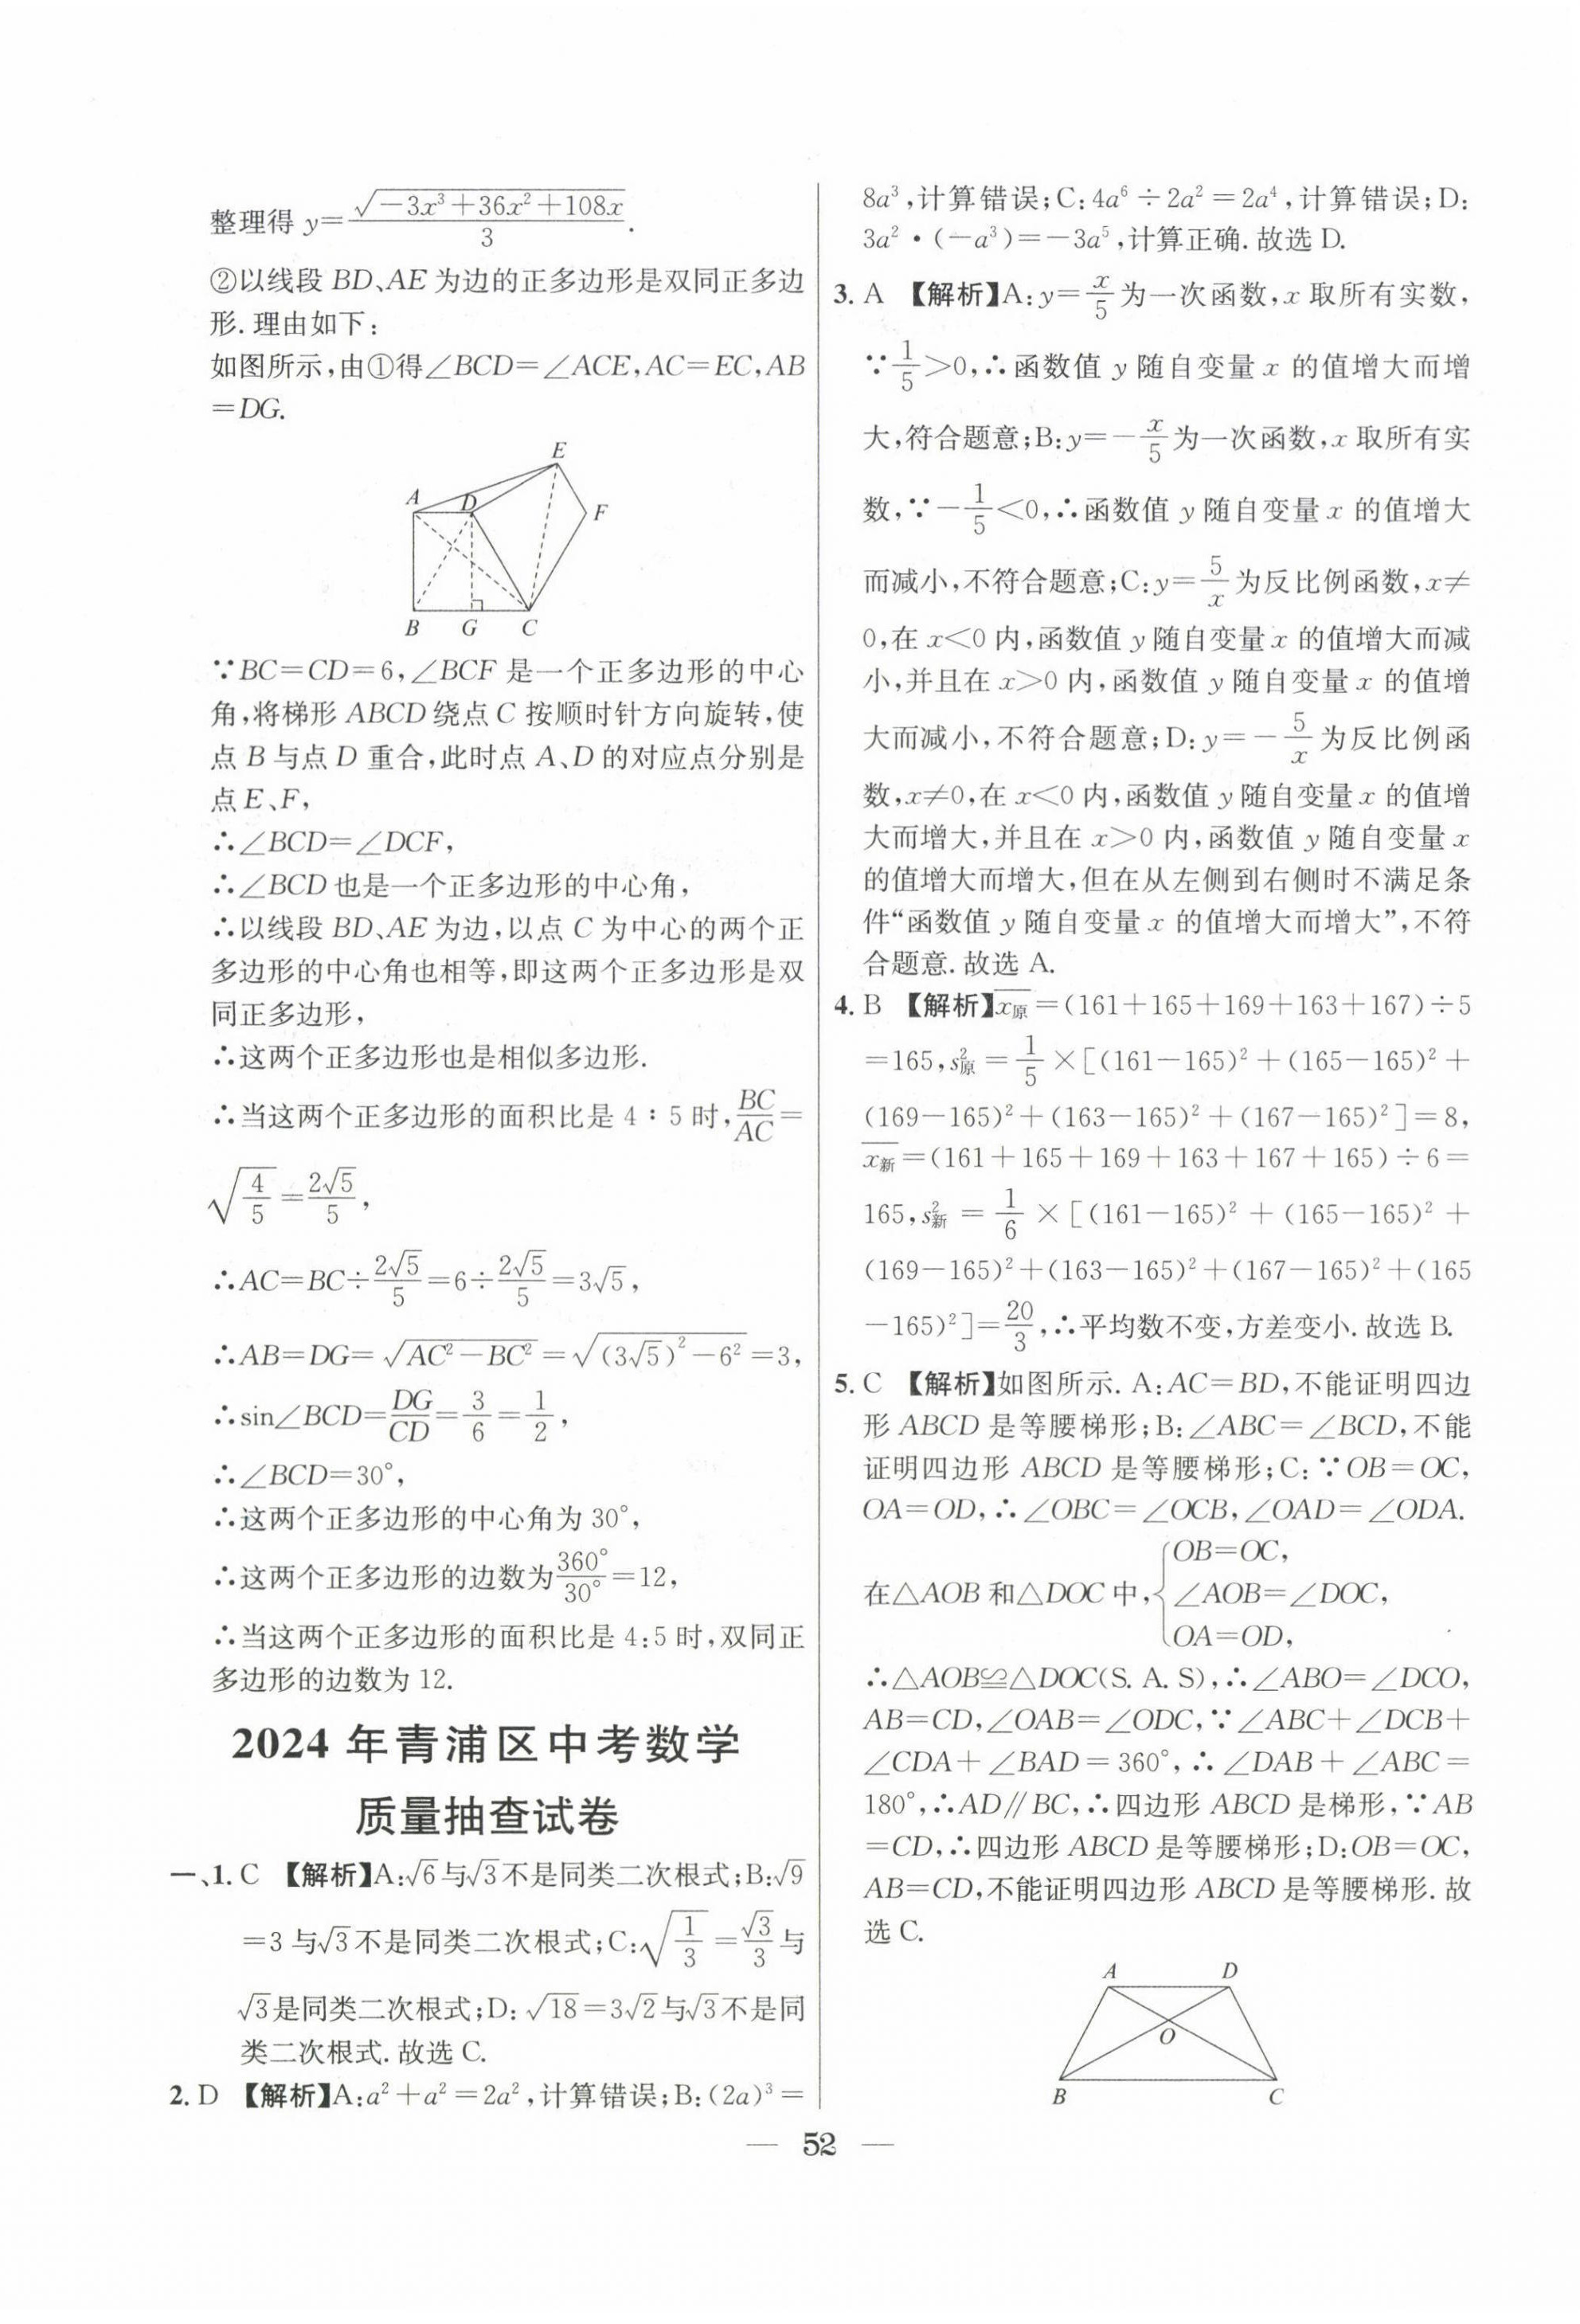 整理得 y=√(-3x³+36x²+108x)/3.
②以线段 BD、AE 为边的正多边形是双同正多边
形.理由如下:
如图所示,由①得∠BCD=∠ACE,AC=EC,AB
=DG.
E
A
D
F
B G C
∵BC=CD=6,∠BCF 是一个正多边形的中心
角,将梯形 ABCD 绕点 C 按顺时针方向旋转,使
点 B 与点 D 重合,此时点 A、D 的对应点分别是
点 E、F,
∴∠BCD=∠DCF,
∴∠BCD 也是一个正多边形的中心角,
∴以线段 BD、AE 为边,以点 C 为中心的两个正
多边形的中心角也相等,即这两个正多边形是双
同正多边形,
∴这两个正多边形也是相似多边形.
∴当这两个正多边形的面积比是 4∶5 时,BC/AC=
√(4/5)=2√5/5,
∴AC=BC÷2√5/5=6÷2√5/5=3√5,
∴AB=DG=√(AC²-BC²)=√((3√5)²-6²)=3,
∴sin∠BCD=DG/CD=3/6=1/2,
∴∠BCD=30°,
∴这两个正多边形的中心角为 30°,
∴这两个正多边形的边数为360°/30°=12,
∴当这两个正多边形的面积比是 4:5 时,双同正
多边形的边数为 12.
2024 年青浦区中考数学
质量抽查试卷
一、1. C 【解析】A:√6与√3不是同类二次根式;B:√9
=3 与√3不是同类二次根式;C:√(1/3)=√3/3与
√3是同类二次根式;D:√18=3√2与√3不是同
类二次根式.故选 C.
2. D 【解析】A:a²+a²=2a²,计算错误;B:(2a)³=
8a³,计算错误;C:4a⁶÷2a²=2a⁴,计算错误;D:
3a²·(-a³)=-3a⁵,计算正确.故选 D.
3. A 【解析】A:y=x/5为一次函数,x 取所有实数,
∵1/5>0,∴函数值 y 随自变量 x 的值增大而增
大,符合题意;B:y=-x/5为一次函数,x 取所有实
数,∵-1/5<0,∴函数值 y 随自变量 x 的值增大
而减小,不符合题意;C:y=5/x为反比例函数,x≠
0,在 x<0 内,函数值 y 随自变量 x 的值增大而减
小,并且在 x>0 内,函数值 y 随自变量 x 的值增
大而减小,不符合题意;D:y=-5/x为反比例函
数,x≠0,在 x<0 内,函数值 y 随自变量 x 的值增
大而增大,并且在 x>0 内,函数值 y 随自变量 x
的值增大而增大,但在从左侧到右侧时不满足条
件“函数值 y 随自变量 x 的值增大而增大”,不符
合题意.故选 A.
4. B 【解析】x̄原=(161+165+169+163+167)÷5
=165,s²原=1/5×[(161-165)²+(165-165)²+
(169-165)²+(163-165)²+(167-165)²]=8,
x̄新=(161+165+169+163+167+165)÷6=
165,s²新=1/6×[(161-165)²+(165-165)²+
(169-165)²+(163-165)²+(167-165)²+(165
-165)²]=20/3,∴平均数不变,方差变小.故选 B.
5. C 【解析】如图所示.A:AC=BD,不能证明四边
形 ABCD 是等腰梯形;B:∠ABC=∠BCD,不能
证明四边形 ABCD 是等腰梯形;C:∵OB=OC,
OA=OD,∴∠OBC=∠OCB,∠OAD=∠ODA.
在△AOB 和△DOC 中,{OB=OC,
∠AOB=∠DOC,
OA=OD,
∴△AOB≌△DOC(S.A.S),∴∠ABO=∠DCO,
AB=CD,∠OAB=∠ODC,∵∠ABC+∠DCB+
∠CDA+∠BAD=360°,∴∠DAB+∠ABC=
180°,∴AD∥BC,∴四边形 ABCD 是梯形,∵AB
=CD,∴四边形 ABCD 是等腰梯形;D:OB=OC,
AB=CD,不能证明四边形 ABCD 是等腰梯形.故
选 C.
A D
O
B C
— 52 —